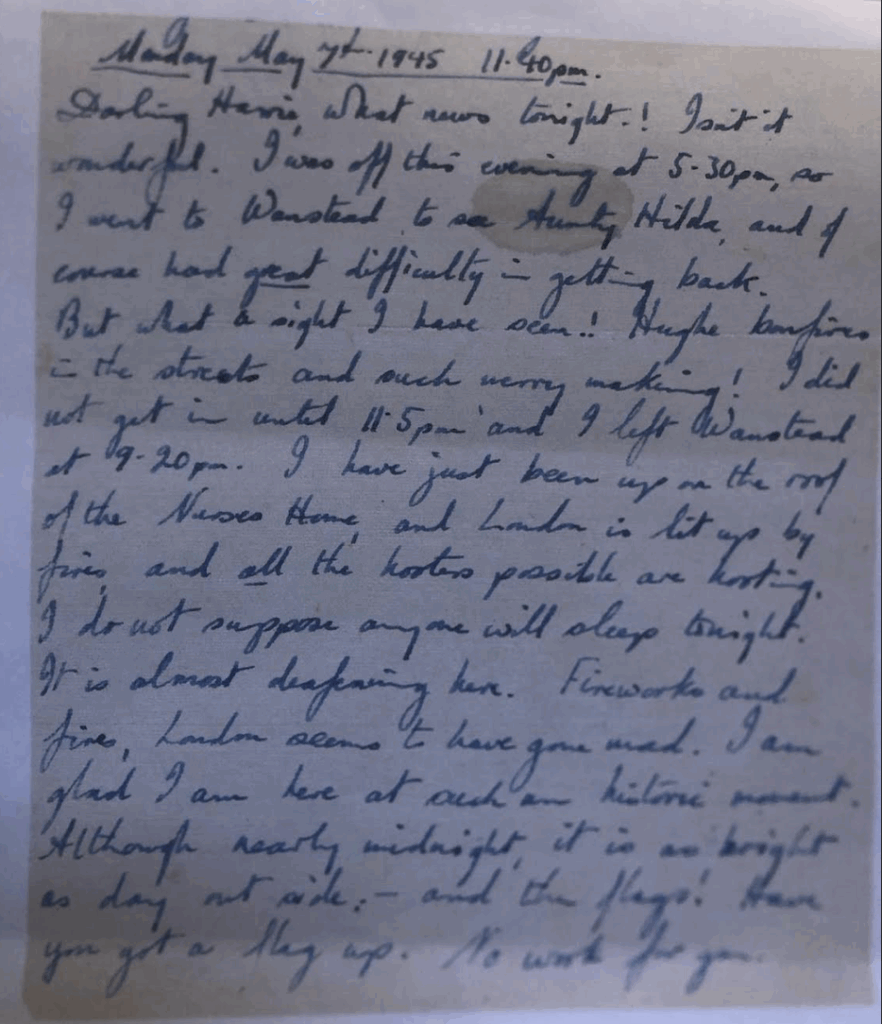 Monday May 7th 1945 11.40pm.
Darling Harrie, what news tonight.! Isn't it
wonderful. I was off this evening at 5-30pm, so
I went to Wanstead to see Aunty Hilda, and of
course had great difficulty in getting back.
But what a sight I have seen.! Hughe bonfires
in the streets and such merry making! I did
not get in until 11.5pm and I left Wanstead
at 9-20pm. I have just been up on the roof
of the Nurses Home, and London is lit up by
fires, and all the hooters possible are hooting.
I do not suppose anyone will sleep tonight.
It is almost deafening here. Fireworks and
fires, London seems to have gone mad. I am
glad I am here at such an historic moment.
Although nearly midnight, it is as bright
as day out side:- and the flags! Have
you got a flag up. No work for you